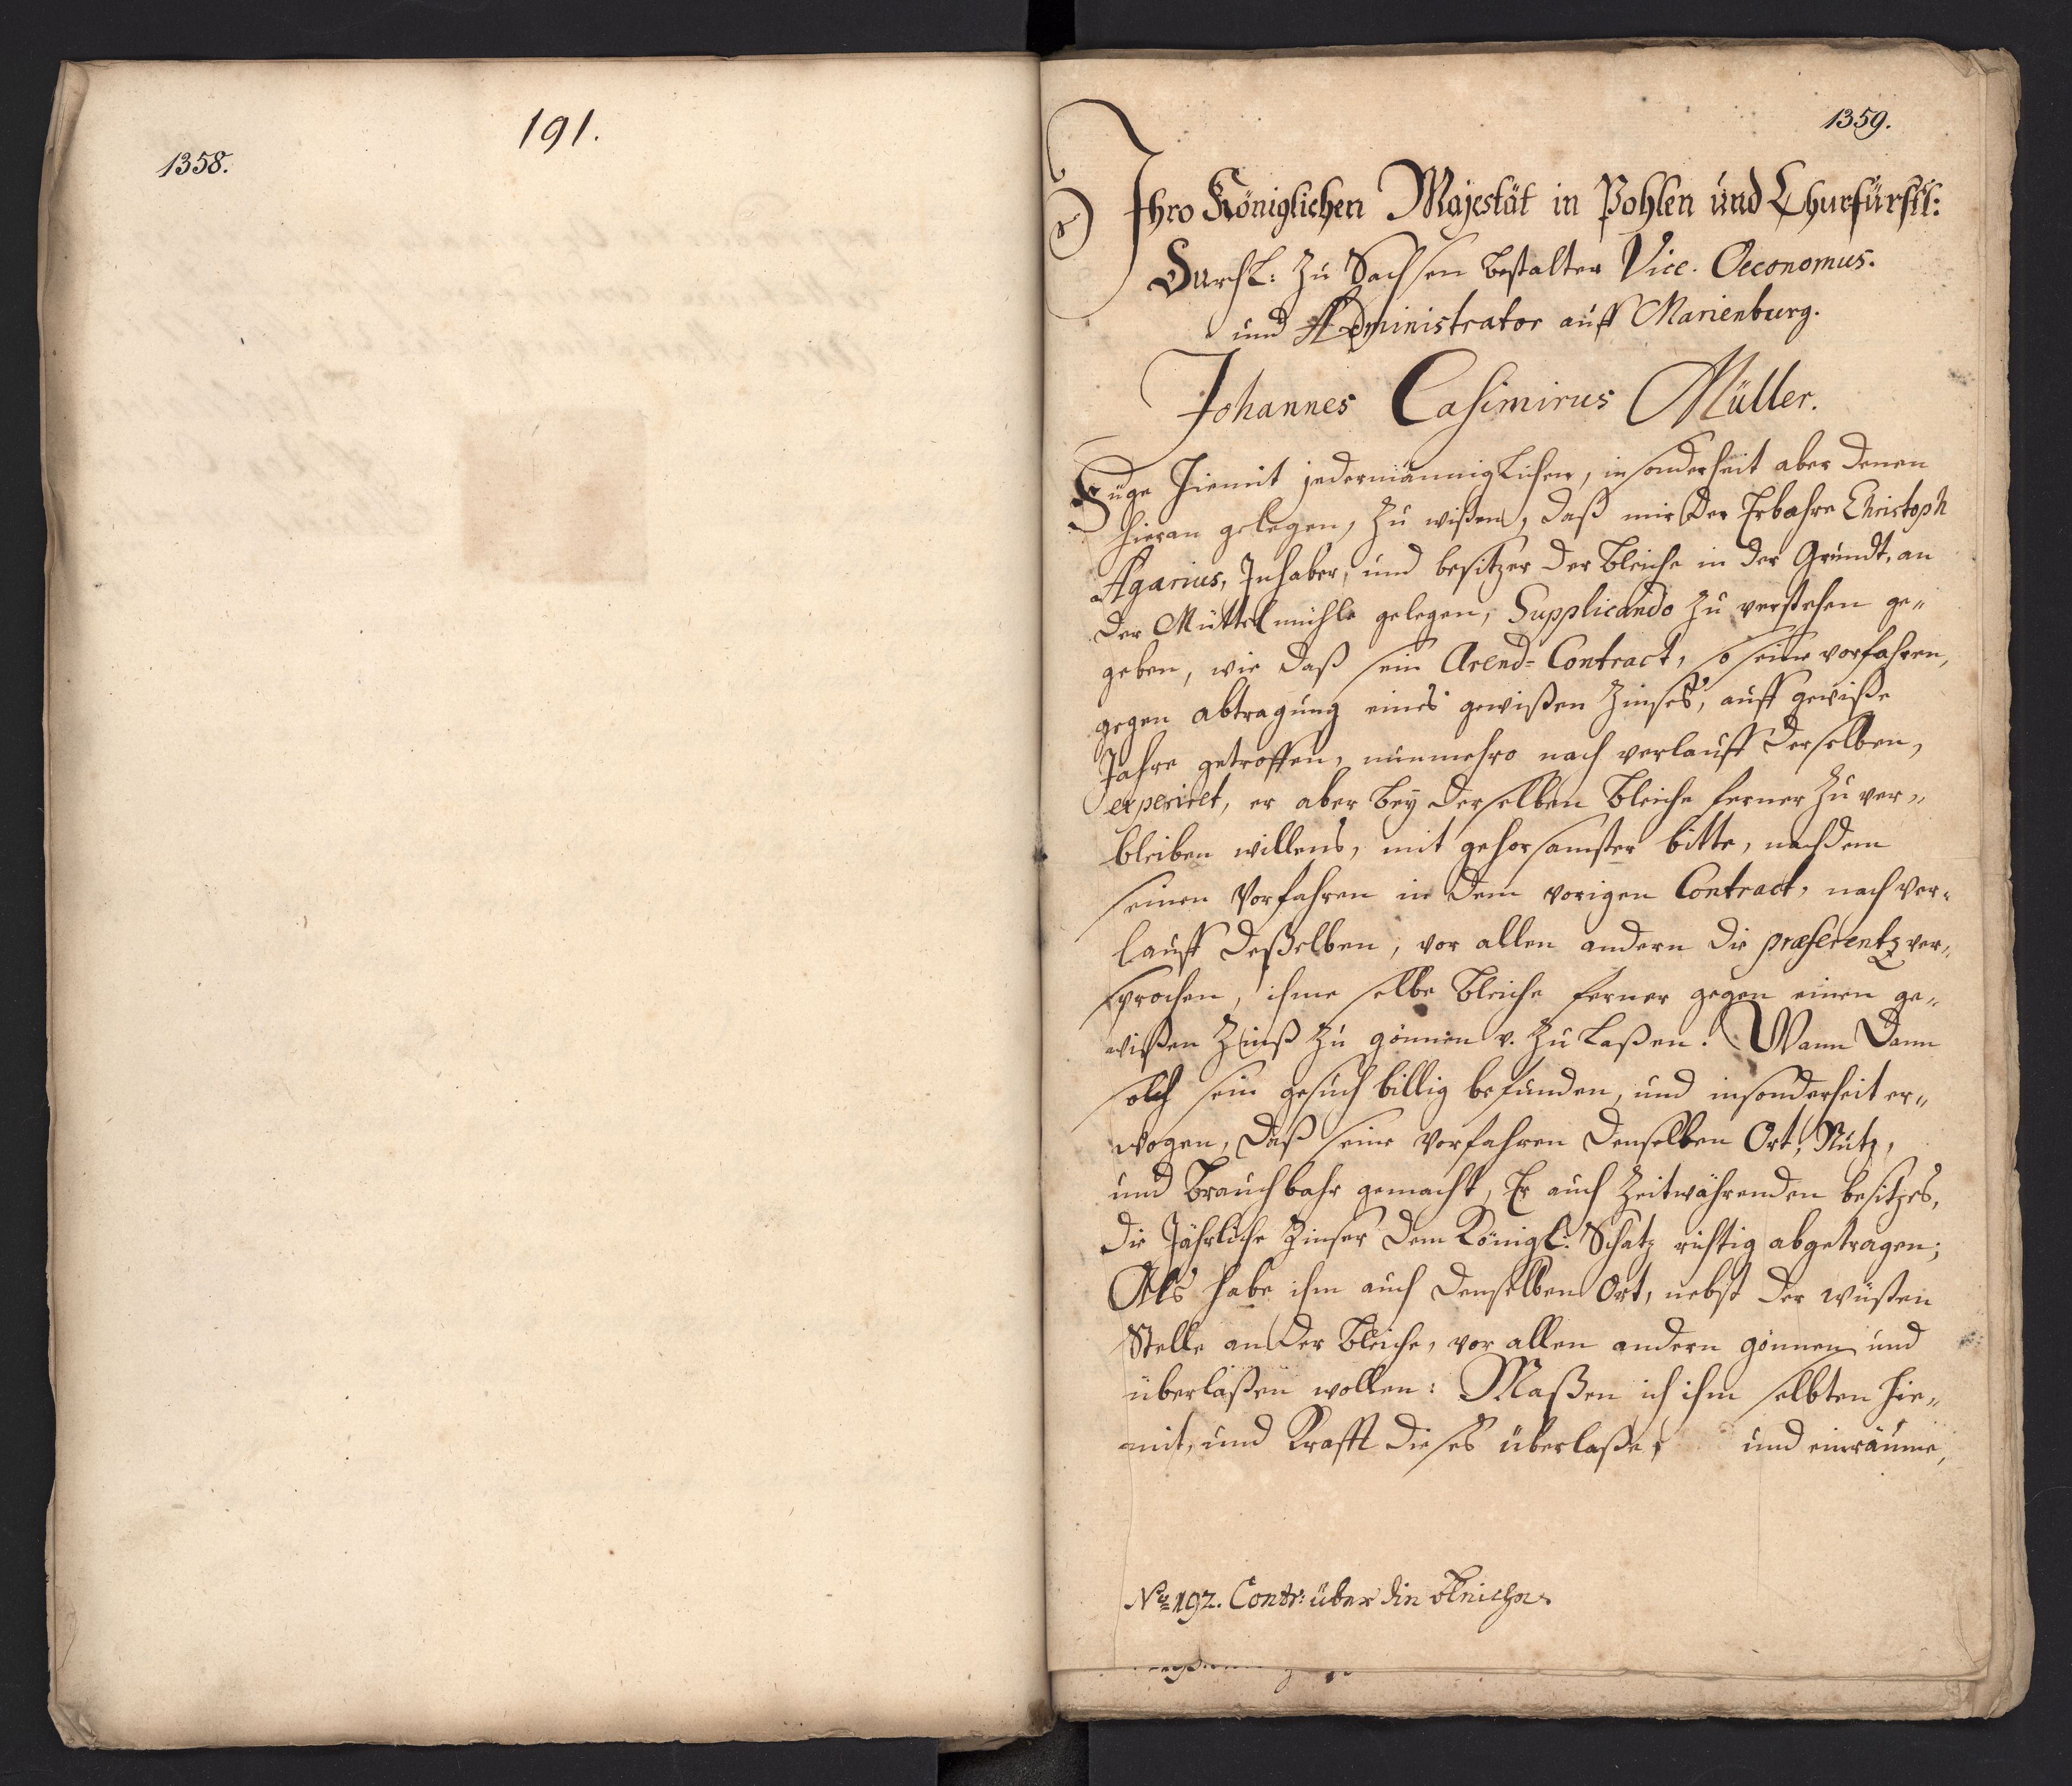 191.
1358.
1359.
Ihro Königlichen Majestät in Pohlen und Churfürstl:
Durchl: Zu Sachsen bestalter Vice. Oeconomus.
und Administrator auff Marienburg.
Johannes Casimirus Müller.
Füge hiemit jedermänniglichen, insonderheit aber denen
hieran gelegen, Zu wißen, daß mir der Erbahre Christoph
Agarius, Inhaber, und besitzer der Bleiche in der Grundt, an
der Müttelmühle gelegen, Supplicando Zu verstehen ge„
geben, wie daß sein Arend-Contract, so seine vorfahren,
gegen abtragung eines gewißen Zinses, auff gewiße
Jahre getroffen, nunmehro nach verlauff derselben,
experiret, er aber bey derselben Bleiche ferner Zu ver„
bleiben willens, mit gehorsamster bitte, nachdem
seinen Vorfahren in dem vorigen Contract, nach ver„
lauff deßelben, vor allen andern die præferentz ver„
sprochen, ihme selbe Bleiche ferner gegen einen ge„
wißen Zinß Zu gönnen v. Zu laßen. Wann dann
solch sein gesuch billig befunden, und insonderheit er„
wogen, daß seine Vorfahren denselben Ort, Nutz,
und Brauchbahr gemacht, Er auch Zeitwährenden besitzes,
die Jährliche Zinser dem Königl: Schatz richtig abgetragen;
Als habe ihm auch denselben Ort, nebst der wüsten
Stelle an der Bleiche, vor allen andern gönnen und
überlaßen wollen: Maßen ich ihm selbten hie„
mit, und Krafft dieses überlaße, und einräume,
No 192. Contr: über die Bleiche.